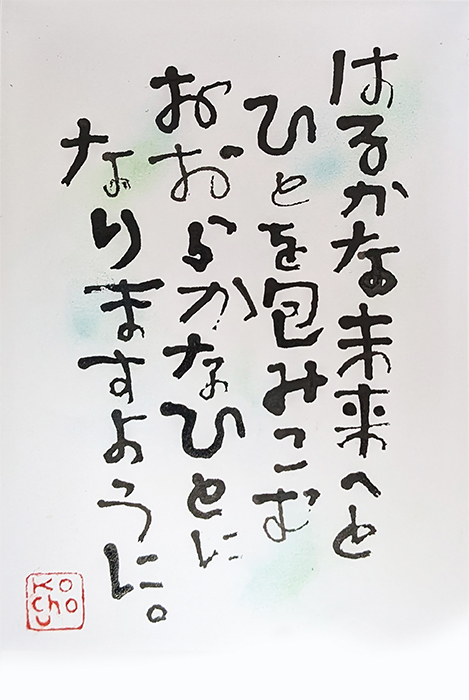 はるかな未来へと
ひとを包みこむ
おおらかなひとに
なりますように。
Ko
cho
u